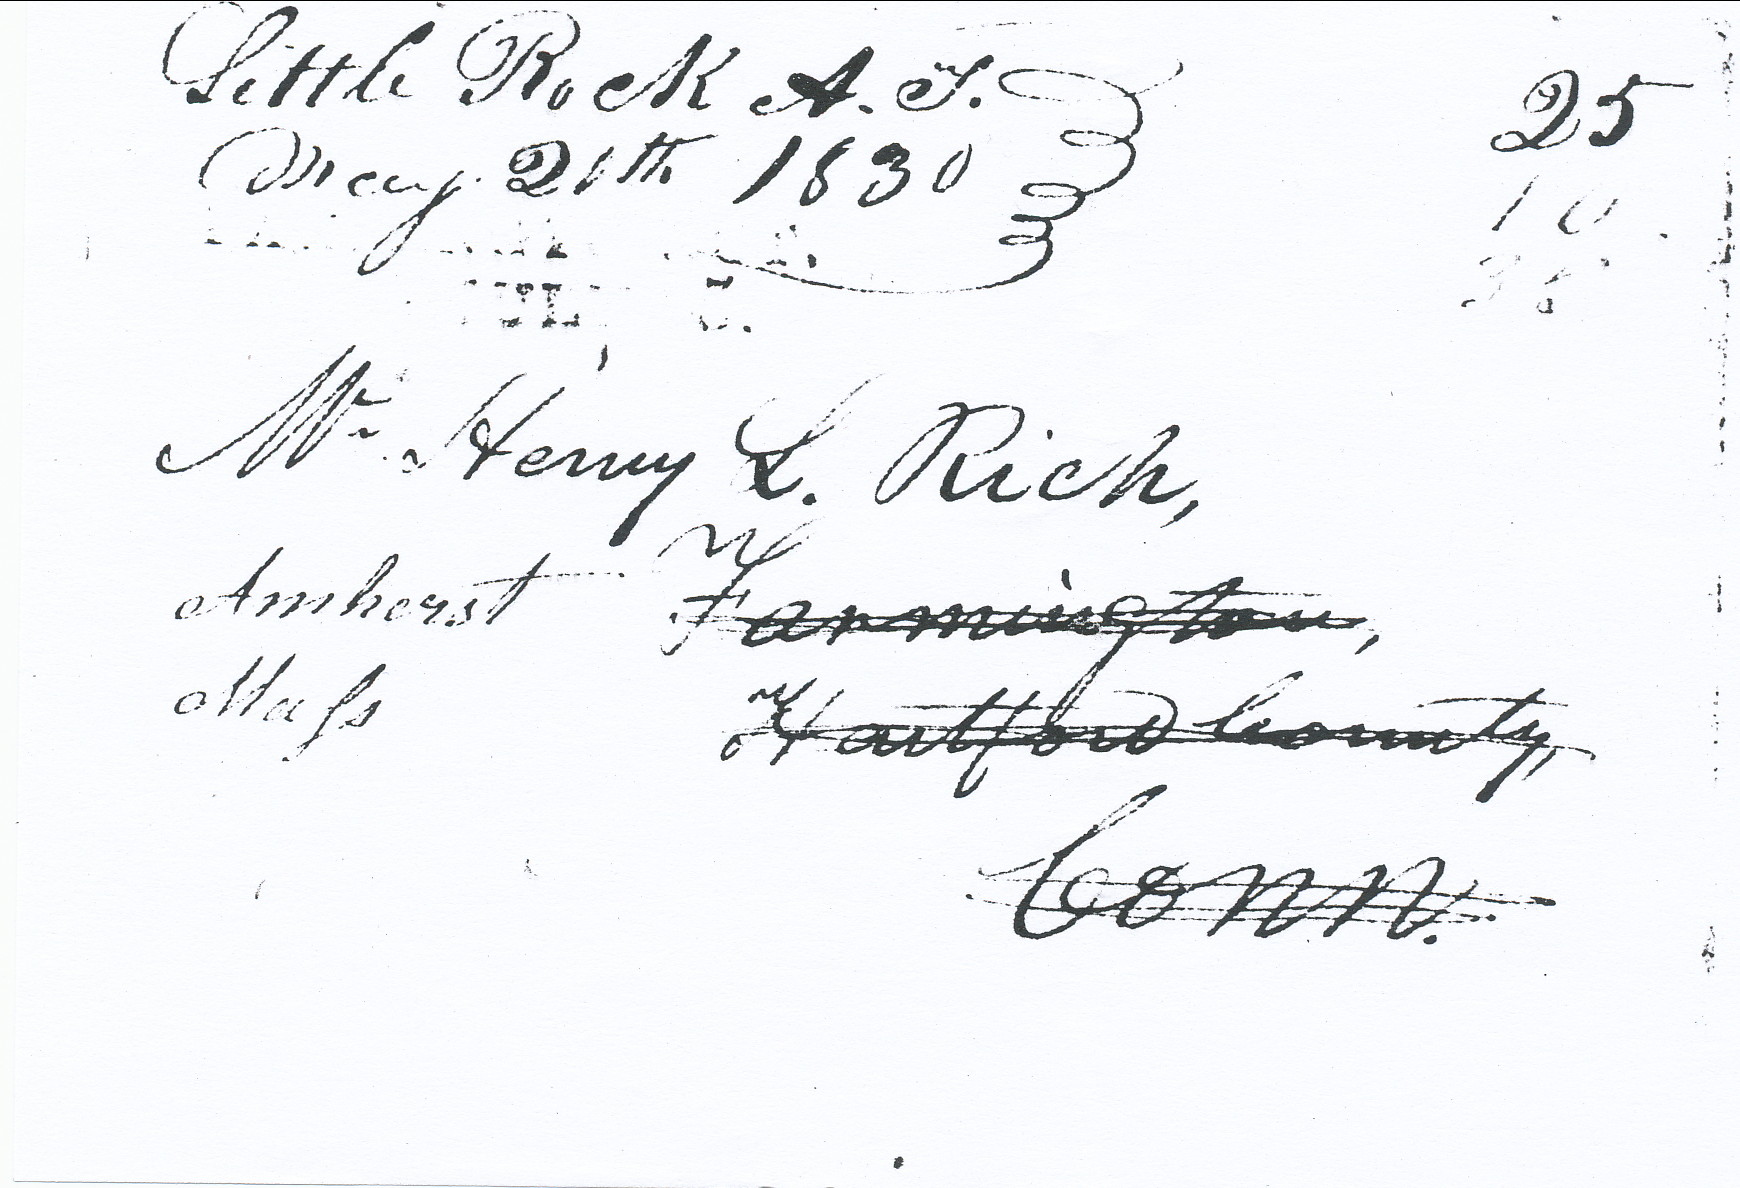 Little Rock A. T.
May 21th 1830
25
10
35
Mr. Henry L. Rich,
Amherst Farmington,
Mass Hartford County,
Conn.